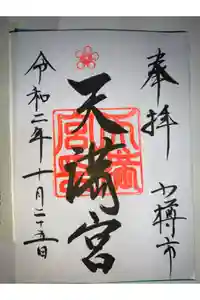 奉拝
小樽市
天満宮
令和二年十月二十五日